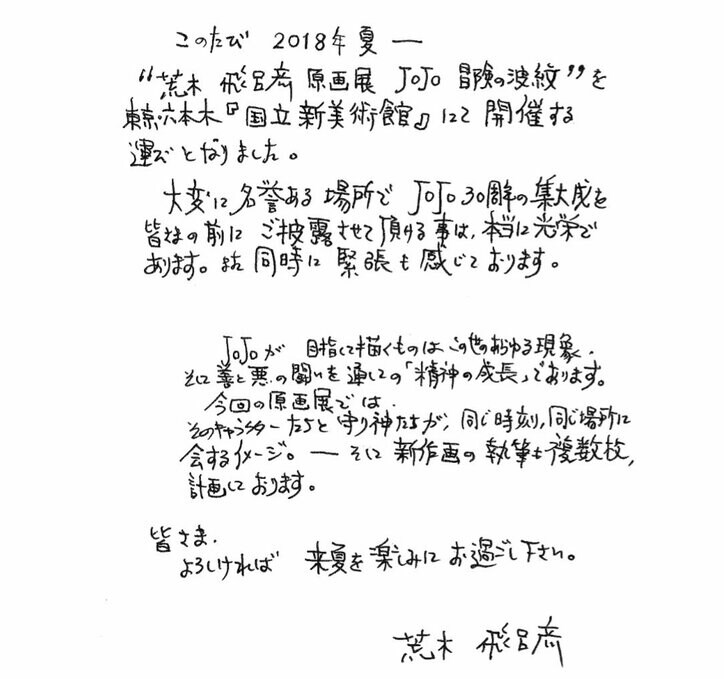 このたび 2018年 夏 ―
“荒木 飛呂彦 原画展 JoJo 冒険の波紋”を
東京・六本木『国立新美術館』にて 開催する
運びとなりました。
大変に名誉ある場所で JoJo 30周年の集大成を
皆さまの前に ご披露させて頂ける事は、本当に光栄で
あります。また 同時に 緊張も 感じております。
JoJoが 目指して描くものは この世のあらゆる現象、
そして善と悪の闘いを通しての「精神の成長」であります。
今回の原画展では、
そのキャラクターたちと守り神たちが、同じ時刻、同じ場所に
会するイメージ。― そして 新作画の執筆も複数枚、
計画しております。
皆さま、
よろしければ 来夏を楽しみに お過ごし下さい。
荒木 飛呂彦